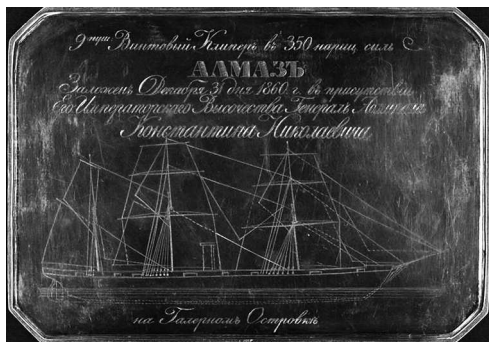 9 пуш. Винтовый Клиперъ въ 350 нариц. силъ
АЛМАЗЪ
Заложенъ Декабря 31 дня 1860 г. въ присутствіи
Его Императорскаго Высочества Генералъ Адмирала
Константина Николаевича
на Галерномъ Островкѣ